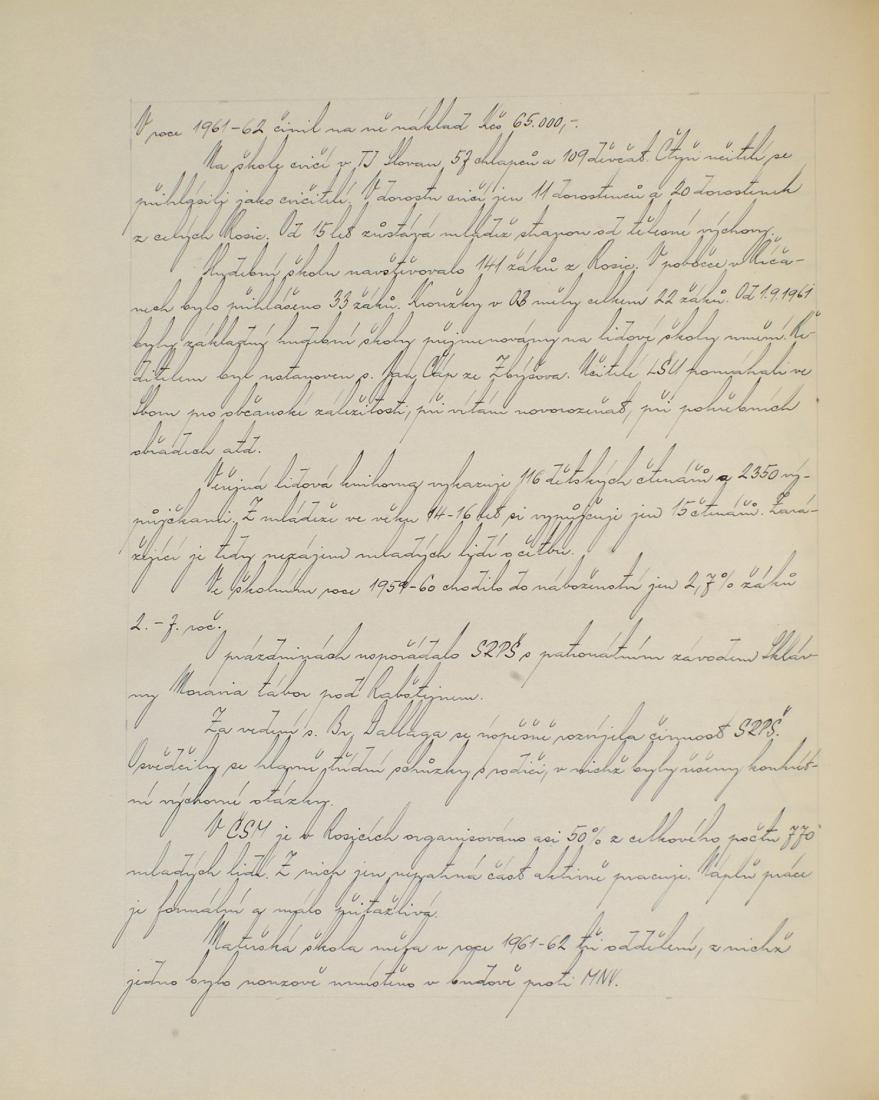 V roce 1961-62 činil na ně náklad Kčs 65.000,-.
Na škole cvičí v TJ Slovan 57 chlapců a 109 děvčat. Čtyři učitelé se
přihlásili jako cvičitelé. V dorostu cvičí jen 11 dorostenců a 20 dorostenek
z celých Rosic. Od 15 let zůstává mládež stranou od tělesné výchovy.
Hudební školu navštěvovalo 141 žáků z Rosic. V pobočce v Říča-
nech bylo přihlášeno 33 žáků. Kroužky v OB měly celkem 22 žáků. Od 1.9.1961
byly základní hudební školy přejmenovány na lidové školy umění. Ře-
ditelem byl ustanoven s. Jan Čáp ze Zbýšova. Učitelé LŠU pomáhali ve
Sboru pro občanské záležitosti, při vítání novorozeňat, při pohřebních
obřadech atd.
Veřejná lidová knihovna vykazuje 116 dětských čtenářů a 2350 vý-
půjčkami. Z mládeže ve věku 14-16 let si vypůjčuje jen 15 čtenářů. Zará-
žející je tedy nezájem mladých lidí o četbu.
Ve školním roce 1959-60 chodilo do náboženství jen 2,7% žáků
2. - 7. roč.
O prázdninách uspořádalo SRPŠ s patronátním závodem Sklár-
ny Moravia tábor pod Rabštejnem.
Za vedení s. Br. Dallaga se úspěšně rozvíjela činnost SRPŠ.
Osvědčily se hlavně třídní schůzky s rodiči, v nichž byly řešeny konkrét-
ní výchovné otázky.
V ČSM je v Rosicích organisováno asi 50% z celkového počtu 770
mladých lidí. Z nich jen nepatrná část aktivně pracuje. Náplň práce
je formální a málo přitažlivá.
Mateřská škola měla v roce 1961-62 tři oddělení, z nichž
jedno bylo nouzově umístěno v budově proti MNV.